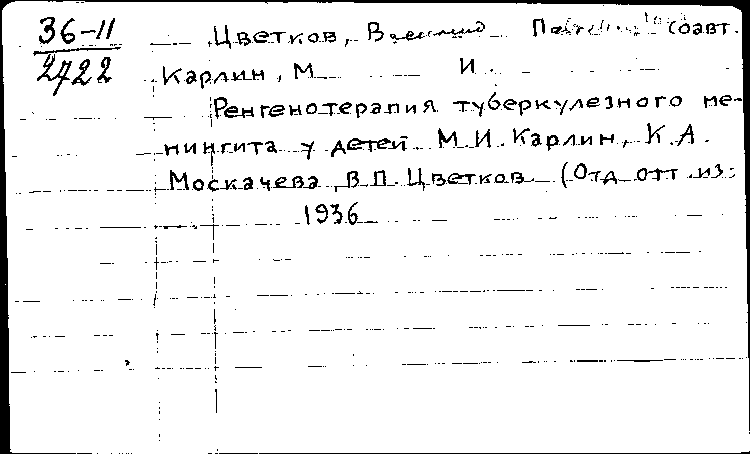 36-11
2722
Цветков, Василий П соавт.
Карлин, М И.
Ренгенотерапия туберкулезного ме-
нингита у детей М.И. Карлин, К.А.
Москачева, В.П. Цветков (Отд отт из:
1936